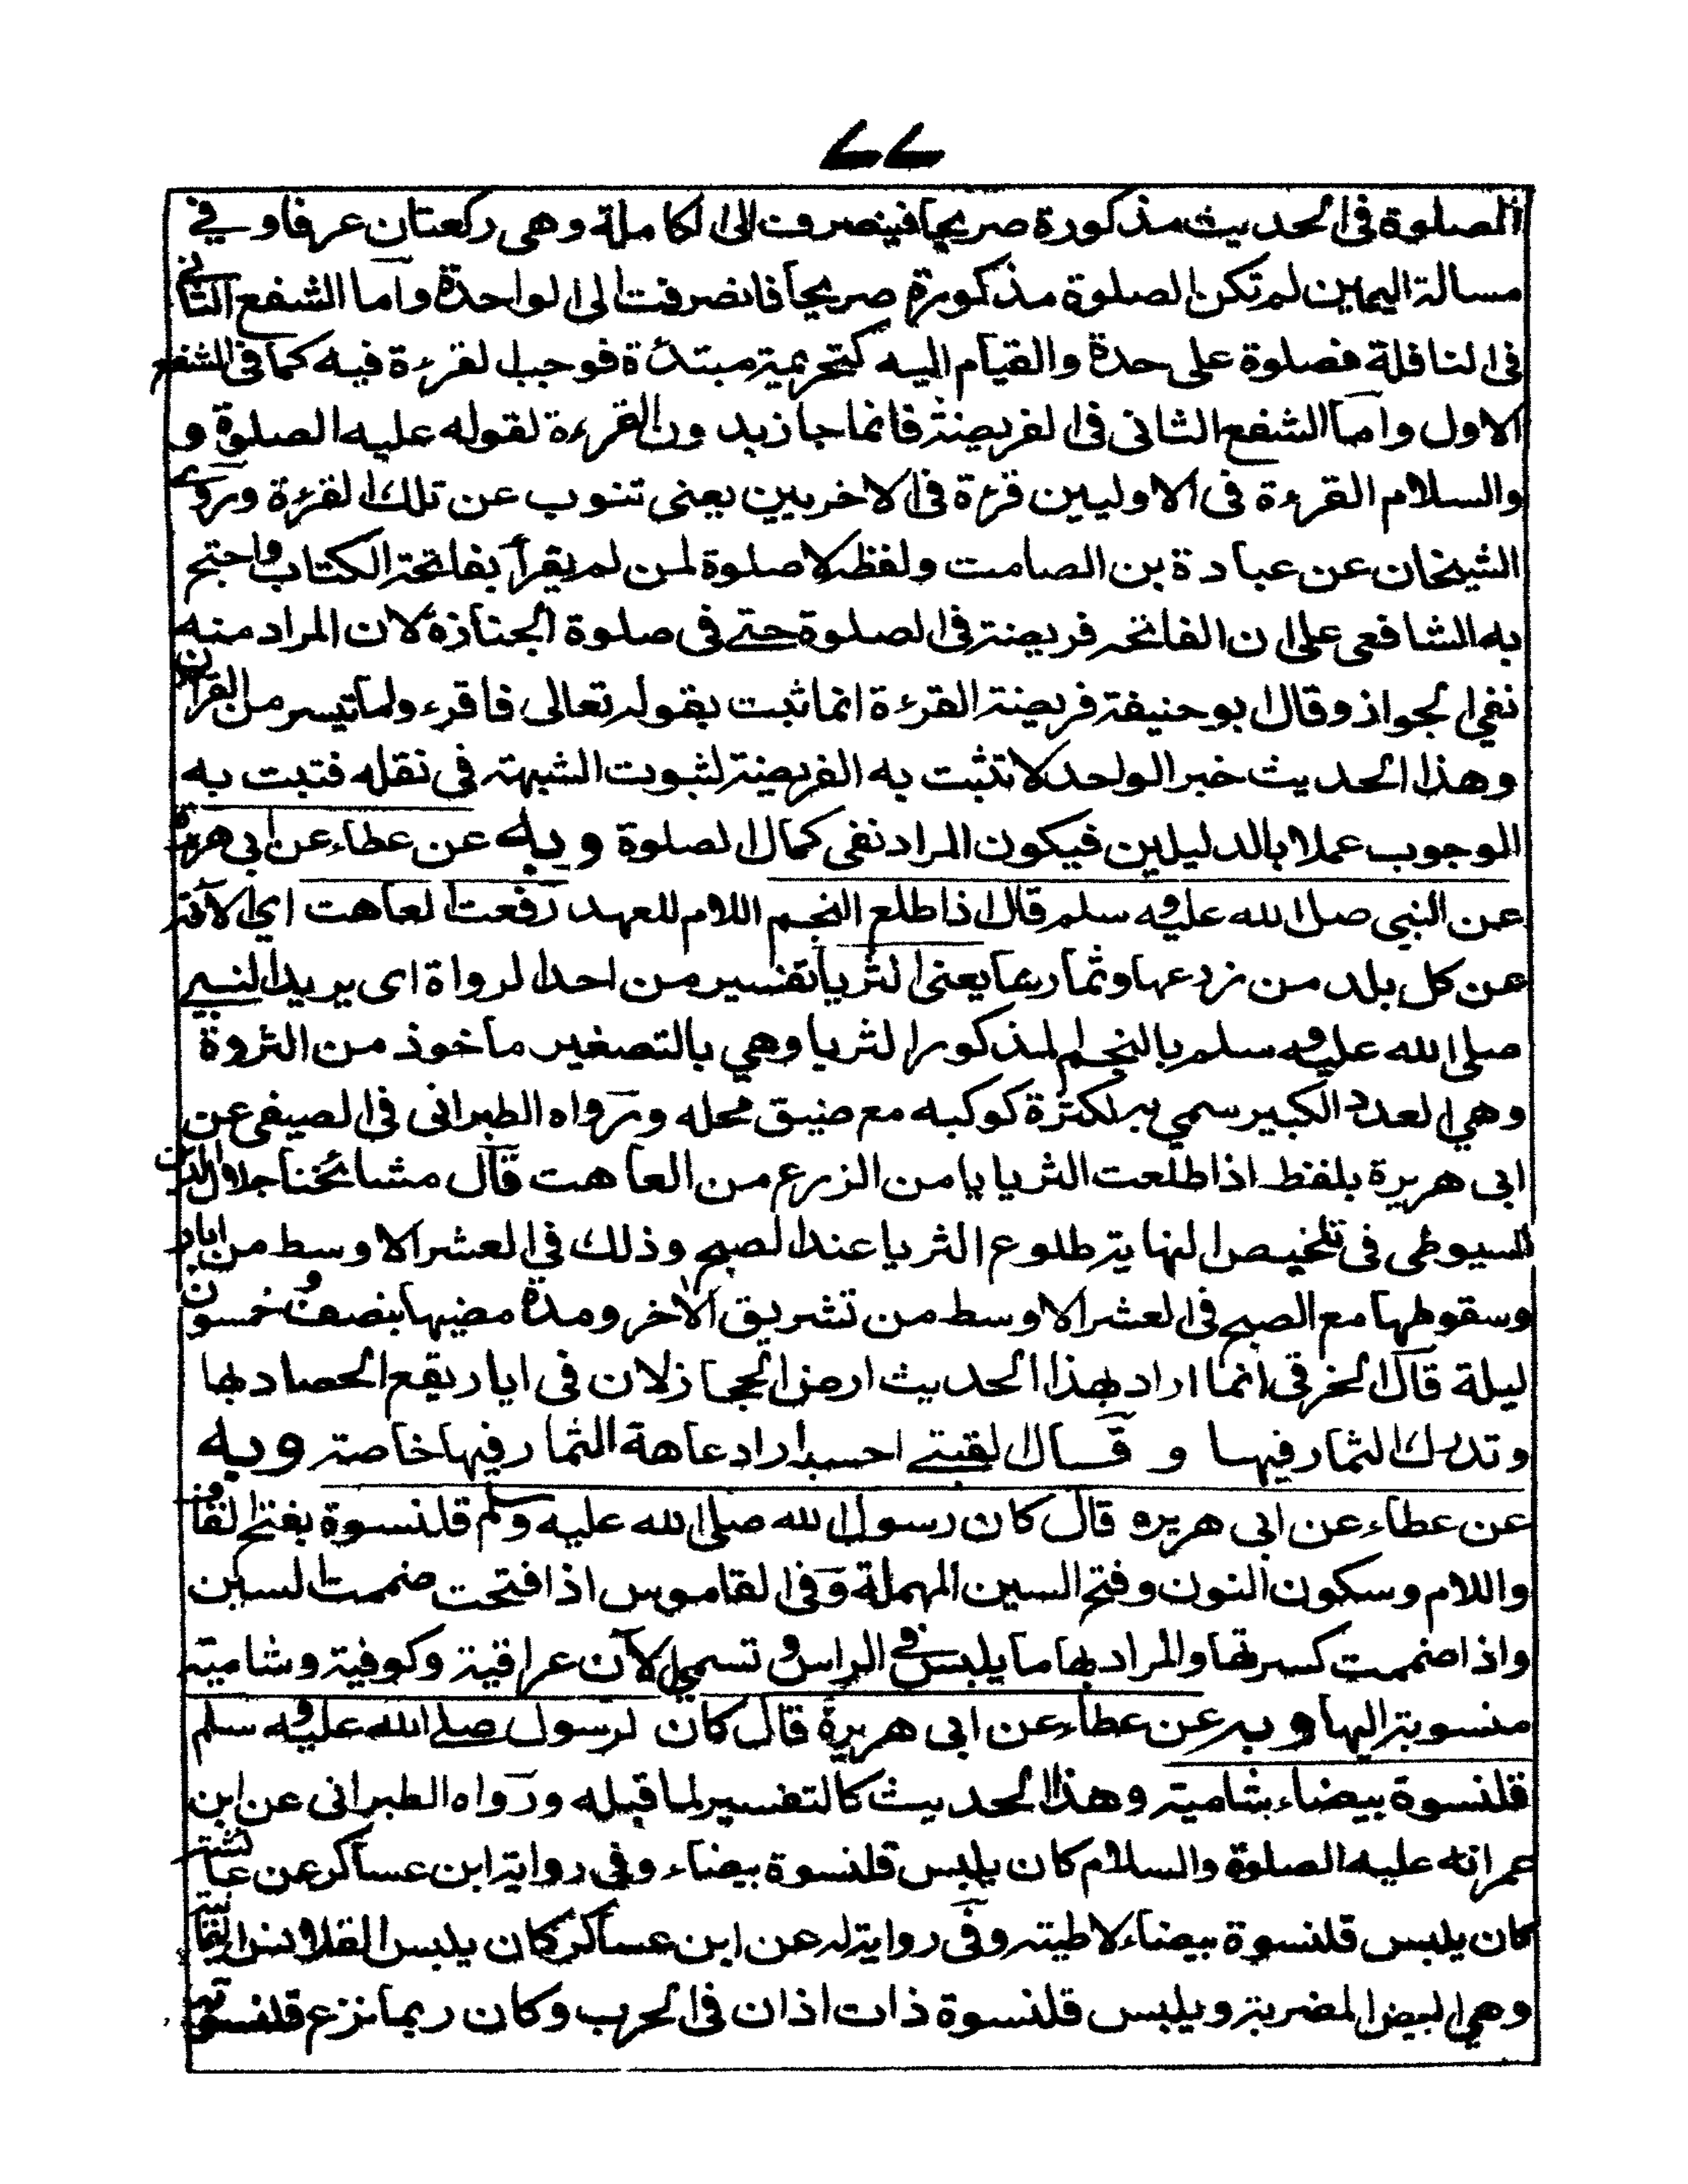 ۷۷
الصلوة فى الحديث مذكورة صريحا فينصرف الى الكاملة وهى ركعتان عرفا و في
مسالة اليمين لم تكن الصلوة مذكورة صريحا فانصرفت الى الواحدة واما الشفع الثانى
فى النافلة فصلوة على حدة والقيام اليه كتحريمة مبتدئة فوجب القرءة فيه كما فى الشفع
الاول واما الشفع الثانى فى الفريضة فانما جاز بدون القرءة لقوله عليه الصلوة و
والسلام القرءة فى الاوليين قرءة فى الاخريين يعنى تنوب عن تلك القرءة وروى
الشيخان عن عبادة بن الصامت ولفظه لا صلوة لمن لم يقرأ بفاتحة الكتاب واحتج
به الشافعى على ان الفاتحه فريضة فى الصلوة حتے فى صلوة الجنازة لان المراد منه
نفي الجواز وقال ابو حنيفة فريضة القرءة انما ثبت بقوله تعالى فاقرءوا ما تيسر من القران
وهذا الحديث خبر الواحد لا تثبت به الفريضة لثبوت الشبهة فى نقله فتبت به
الوجوب عملا بالدليلين فيكون المراد نفى كمال الصلوة و به عن عطاء عن ابى هريرة
عن النبي صلى الله عليه وسلم قال اذا طلع النجم اللام للعهد رفعت العاهت اي الآفة
عن كل بلد من زرعها وثمارها يعنى الثريا تفسير من احد الرواة اى يريد النبے
صلى الله عليه وسلم بالنجم المذكور الثريا وهي بالتصغير ماخوذ من الثروة
وهي العدد الكبير سمي به لكثرة كوكبه مع ضيق محله ورواه الطبرانى فى الصيفى عن
ابى هريرة بلفظ اذا طلعت الثريا يامن الزرع من العاهت قال مشائخنا جلال الدين
السيوطى فى تلخيص النهاية طلوع الثريا عند الصبح وذلك في العشر الاوسط من اياد
وسقوطها مع الصبح فى العشر الاوسط من تشريق الاخر ومدة مضيها بنصف وخمسون
ليلة قال الخرقى انما اراد بهذا الحديث ارض الحجاز لان فى ايار يقع الحصاد بها
وتدرك الثمار فيها و قال لقبتے احسبه اراد عاهة الثمار فيها خاصة وبه
عن عطاء عن ابى هريره قال كان رسول الله صلى الله عليه وسلم قلنسوة بفتح القاف
واللام وسكون النون وفتح السين المهملة وفى القاموس اذا فتحت ضممت السين
واذا ضممت كسرتها والمراد بها ما يلبس في الراس و تسمي الآن عراقية وكوفية وشامية
منسوبة اليها و به عن عطاء عن ابى هريرة قال كان لرسول صلے الله عليه وسلم
قلنسوة بيضاء شامية وهذا الحديث كالتفسير لما قبله ورواه الطبرانى عن ابن
عمر انه عليه الصلوة والسلام كان يلبس قلنسوة بيضاء وفى رواية ابن عساكر عن عائشة
كان يلبس قلنسوة بيضاء لاطيته وفى رواية له عن ابن عساكر كان يلبس القلانس اليمانية
وهي البيض المضربة ويلبس قلنسوة ذات اذان فى الحرب وكان ربما نزع قلنسوته